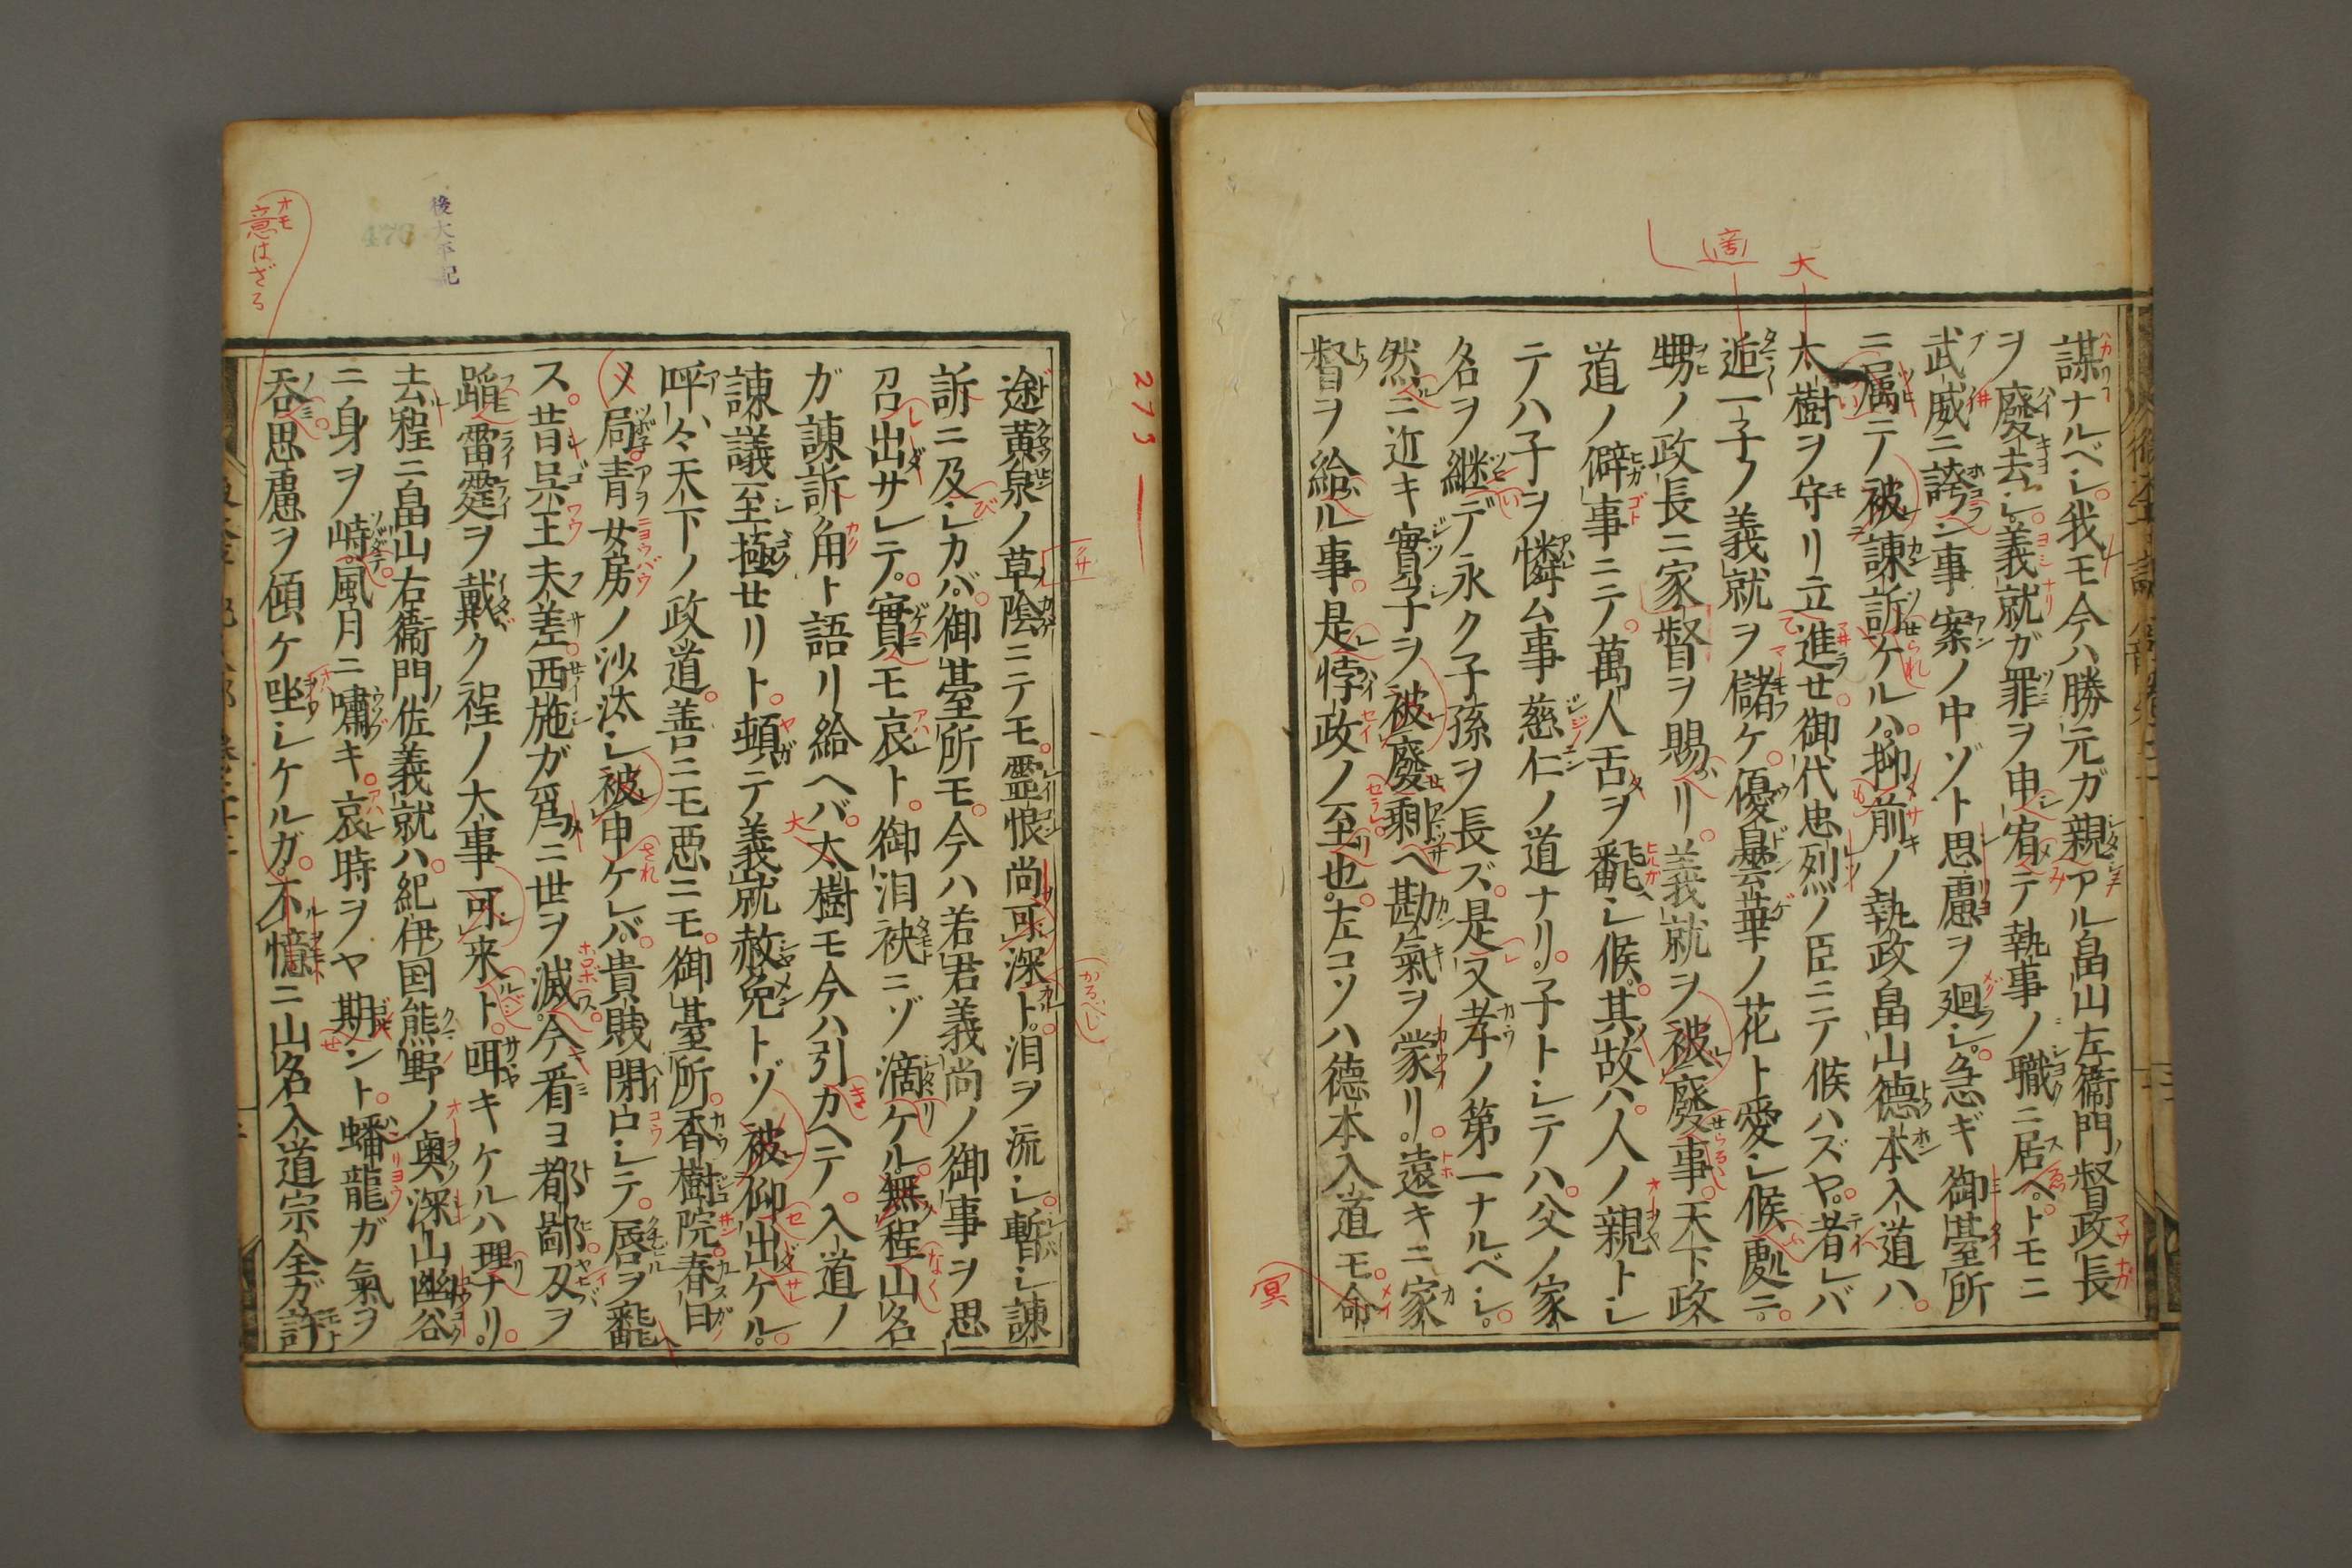 謀ナルベシ我モ今ハ勝元ガ親アル畠山左衞門督政長
ヲ廢去シ義就ガ罪ヲ申宥テ執事ノ職ニ居ヘトモニ
武威ニ誇ン事案ノ中ゾト思慮ヲ廻シ急ギ御臺所
ニ属テ被諌訴ケルハ抑前ノ執政畠山德本入道ハ
大樹ヲ守リ立進セ御代忠烈ノ臣ニテ候ハズヤ者レバ
近一子ノ義就ヲ儲ケ優曇華ノ花ト愛シ候處ニ
甥ノ政長ニ家督ヲ賜リ義就ヲ被廢事天下政
道ノ僻事ニテ萬人舌ヲ飜シ候其故ハ人ノ親トシ
テハ子ヲ憐ム事慈仁ノ道ナリ子トシテハ父ノ家
名ヲ継デ永ク子孫ヲ長ズ是又孝ノ第一ナルベシ
然ニ近キ實子ヲ被廢剩ヘ勘氣ヲ蒙リ遠キニ家
督ヲ給ル事是悖政ノ至也左コソハ德本入道モ命
途黄泉ノ草陰ニテモ霊恨尚可深ト泪ヲ流シ暫シ諌
訴ニ及シカバ御臺所モ今ハ若君義尚ノ御事ヲ思
召出サレテ實モ哀ト御泪袂ニゾ滴ケル無程山名
ガ諌訴角ト語リ給ヘバ大樹モ今ハ引カヘテ入道ノ
諌議至極セリト頓テ義就赦免トゾ被仰出ケル
呼々天下ノ政道善ニモ悪ニモ御臺所香樹院春日
ノ局青女房ノ沙汰シ被申ケレバ貴賎閉口シテ唇ヲ飜
ス昔呉王夫差西施ガ爲ニ世ヲ滅今看ヨ都鄙刄ヲ
蹈雷霆ヲ戴ク程ノ大事可来ト咡キケルハ理ナリ
去程ニ畠山右衞門佐義就ハ紀伊国熊野ノ奥深山幽谷
ニ身ヲ峙風月ニ嘯キ哀時ヲヤ期ント蟠龍ガ氣ヲ
吞思慮ヲ傾ケ坐シケルガ不憶ニ山名入道宗全ガ許
大
適
冥
273
後太平記
476
意はざる